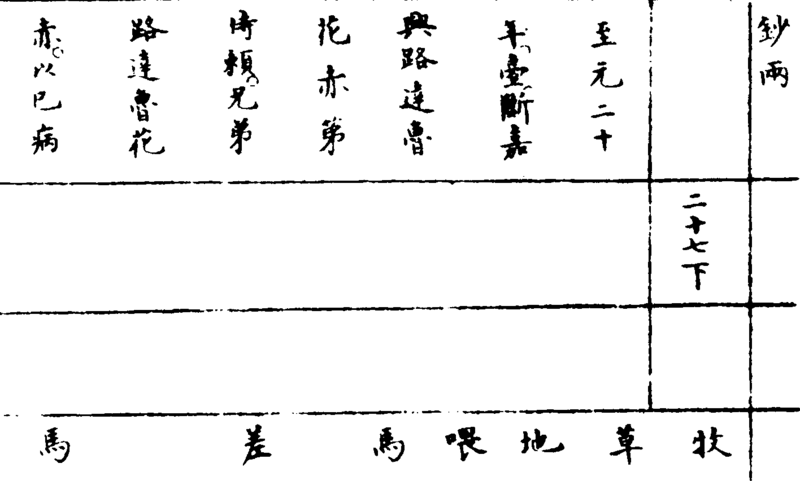 鈔兩
二十七下
至元二十
年壹斷嘉
興路達魯
花赤第
倚賴兄弟
路達魯花
赤以巳病
牧草地喂馬差馬